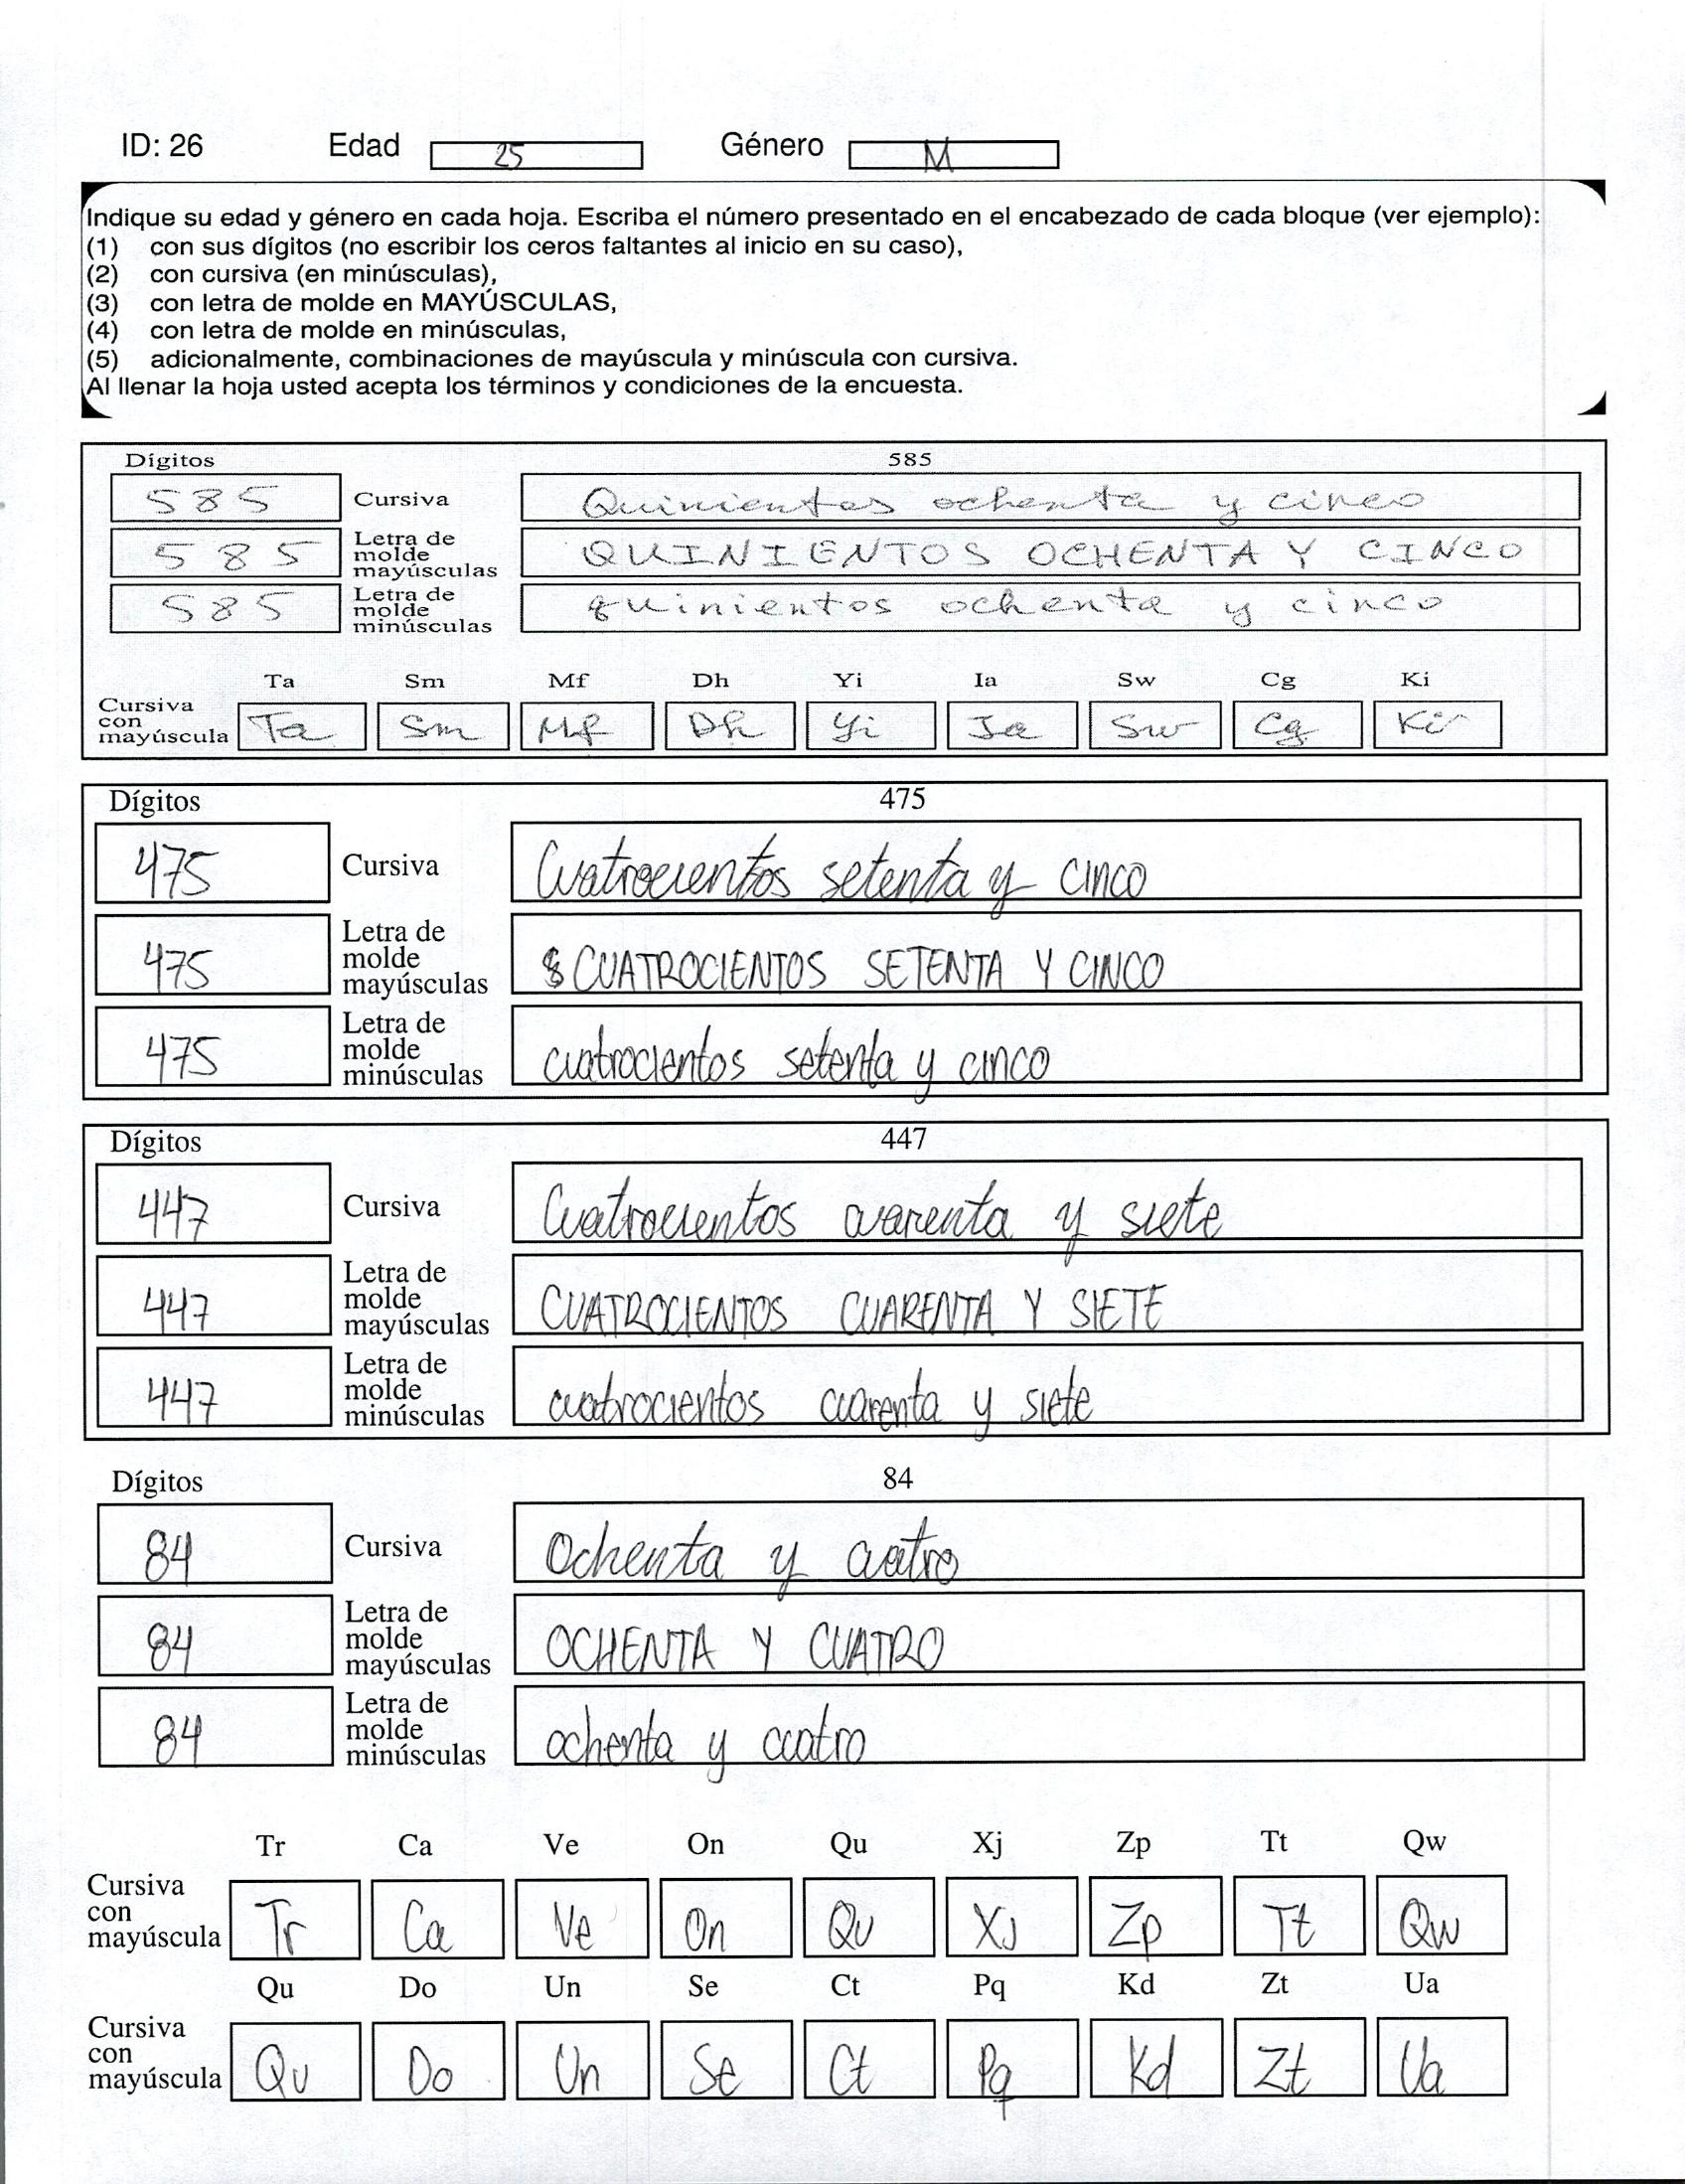 ID: 26 Edad 25 Género M
Indique su edad y género en cada hoja. Escriba el número presentado en el encabezado de cada bloque (ver ejemplo):
(1) con sus dígitos (no escribir los ceros faltantes al inicio en su caso),
(2) con cursiva (en minúsculas),
(3) con letra de molde en MAYÚSCULAS,
(4) con letra de molde en minúsculas,
(5) adicionalmente, combinaciones de mayúscula y minúscula con cursiva.
Al llenar la hoja usted acepta los términos y condiciones de la encuesta.
Dígitos 585
585 Cursiva Quinientos ochenta y cinco
585 Letra de molde mayúsculas QUINIENTOS OCHENTA Y CINCO
585 Letra de molde minúsculas quinientos ochenta y cinco
Ta Sm Mf Dh Yi Ia Sw Cg Ki
Cursiva con mayúscula Ta Sm Mf Dh Yi Ia Sw Cg Ki
Dígitos 475
475 Cursiva Cuatrocientos setenta y cinco
475 Letra de molde mayúsculas CUATROCIENTOS SETENTA Y CINCO
475 Letra de molde minúsculas cuatrocientos setenta y cinco
Dígitos 447
447 Cursiva Cuatrocientos cuarenta y siete
447 Letra de molde mayúsculas CUATROCIENTOS CUARENTA Y SIETE
447 Letra de molde minúsculas cuatrocientos cuarenta y siete
Dígitos 84
84 Cursiva Ochenta y cuatro
84 Letra de molde mayúsculas OCHENTA Y CUATRO
84 Letra de molde minúsculas ochenta y cuatro
Tr Ca Ve On Qu Xj Zp Tt Qw
Cursiva con mayúscula Tr Ca Ve On Qu Xj Zp Tt Qw
Qu Do Un Se Ct Pq Kd Zt Ua
Cursiva con mayúscula Qu Do Un Se Ct Pq Kd Zt Ua